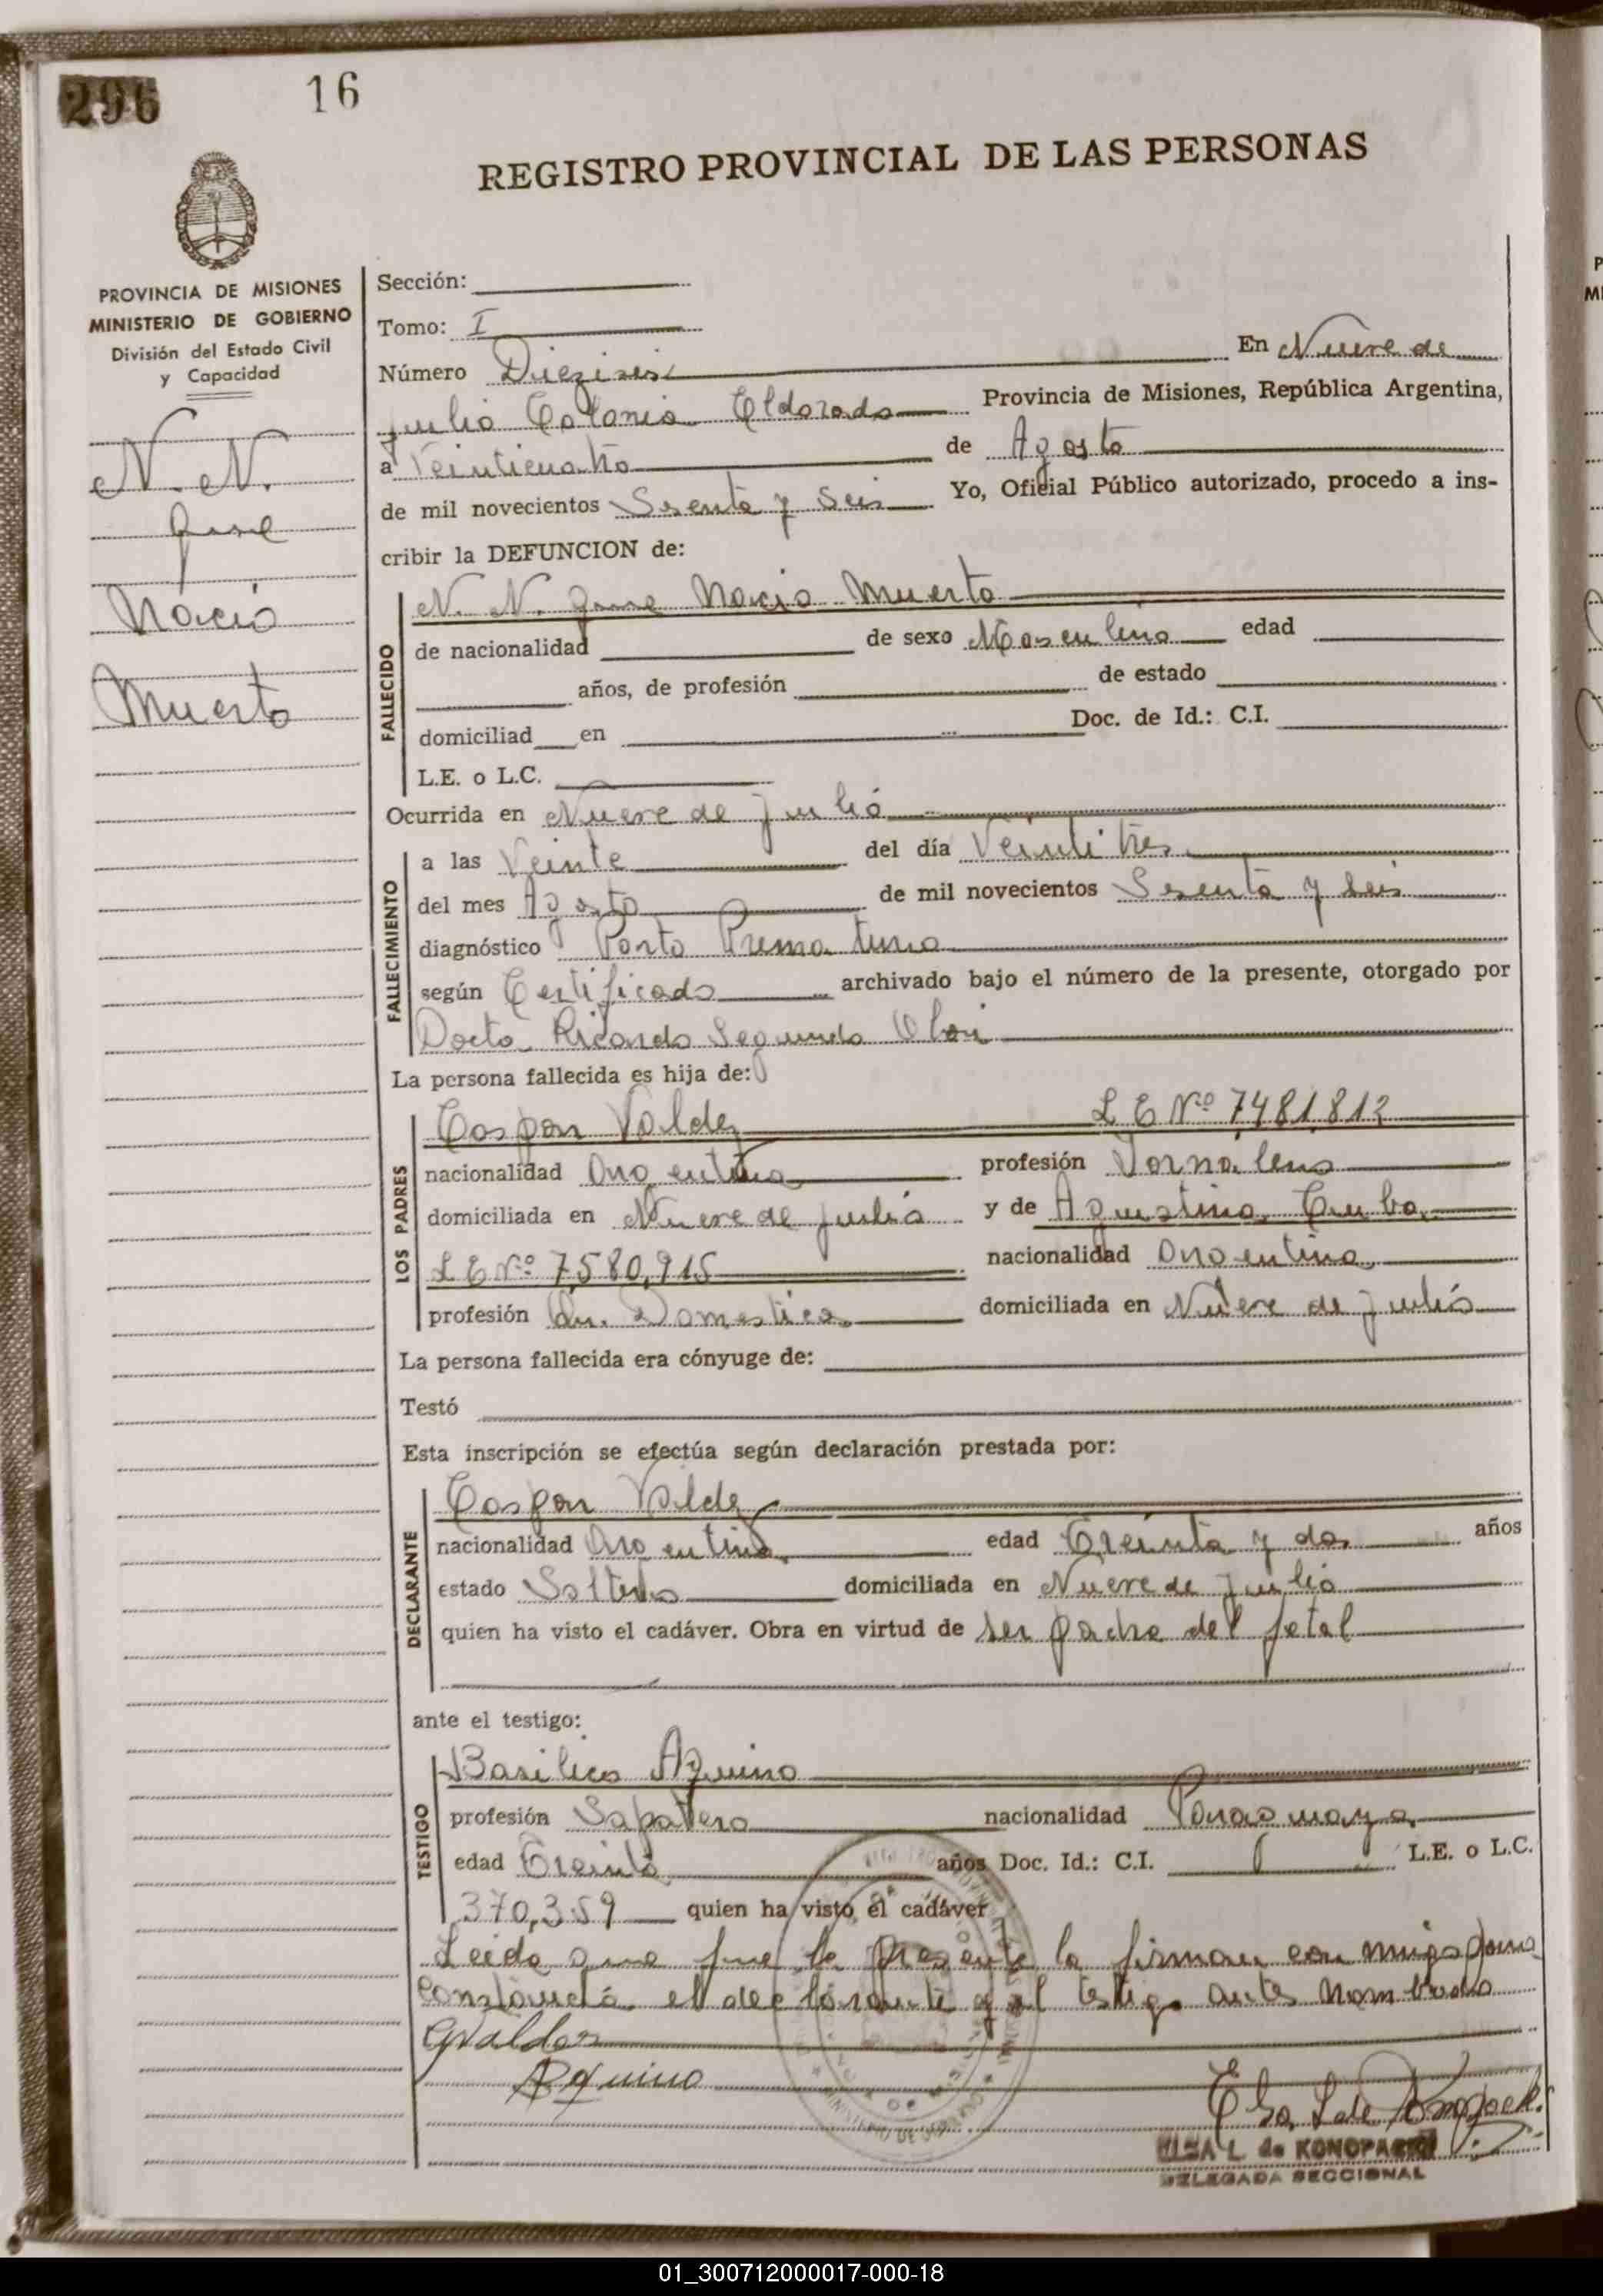 296
16
REGISTRO PROVINCIAL DE LAS PERSONAS
PROVINCIA DE MISIONES
MINISTERIO DE GOBIERNO
División del Estado Civil
y Capacidad
N. N.
que
Nació
Muerto
Sección:
Tomo: I
Número Dieziseis En Nueve de
Julio Colonia Eldorado Provincia de Misiones, República Argentina,
a Veinticuatro de Agosto
de mil novecientos Sesenta y Seis Yo, Oficial Público autorizado, procedo a ins-
cribir la DEFUNCION de:
FALLECIDO
N. N. que Nacio Muerto
de nacionalidad de sexo Masculino edad
años, de profesión de estado
domiciliad en Doc. de Id.: C.I.
L.E. o L.C.
Ocurrida en Nueve de Julió
FALLECIMIENTO
a las Veinte del día Veintitres
del mes Agosto de mil novecientos Sesenta y Seis
diagnóstico Parto Prematuro
según Certificado archivado bajo el número de la presente, otorgado por
Docto Ricardo Segundo
La persona fallecida es hija de:
LOS PADRES
Gaspar Valdez L E Nº 7,481,812
nacionalidad Argentina profesión Jornalero
domiciliada en Nueve de Julió y de Agustina
L E Nº 7,580,915 nacionalidad Argentina
profesión Domestica domiciliada en Nueve de Julió
La persona fallecida era cónyuge de:
Testó
Esta inscripción se efectúa según declaración prestada por:
DECLARANTE
Gaspar Valdez
nacionalidad Argentina edad Treinta y dos años
estado Soltero domiciliada en Nueve de Julió
quien ha visto el cadáver. Obra en virtud de ser padre del fetal
ante el testigo:
TESTIGO
Basilico Aquino
profesión Sapatero nacionalidad Paraguaya
edad Treinta años Doc. Id.: C.I. L.E. o L.C.
370,359 quien ha visto el cadáver
Leida que fue la presente la firman con migo para
constancia el declarante y el testigo antes nombrado
GValdez
Aquino
ELSA L. de KONOPACKI
DELEGADA SECCIONAL
01_300712000017-000-18